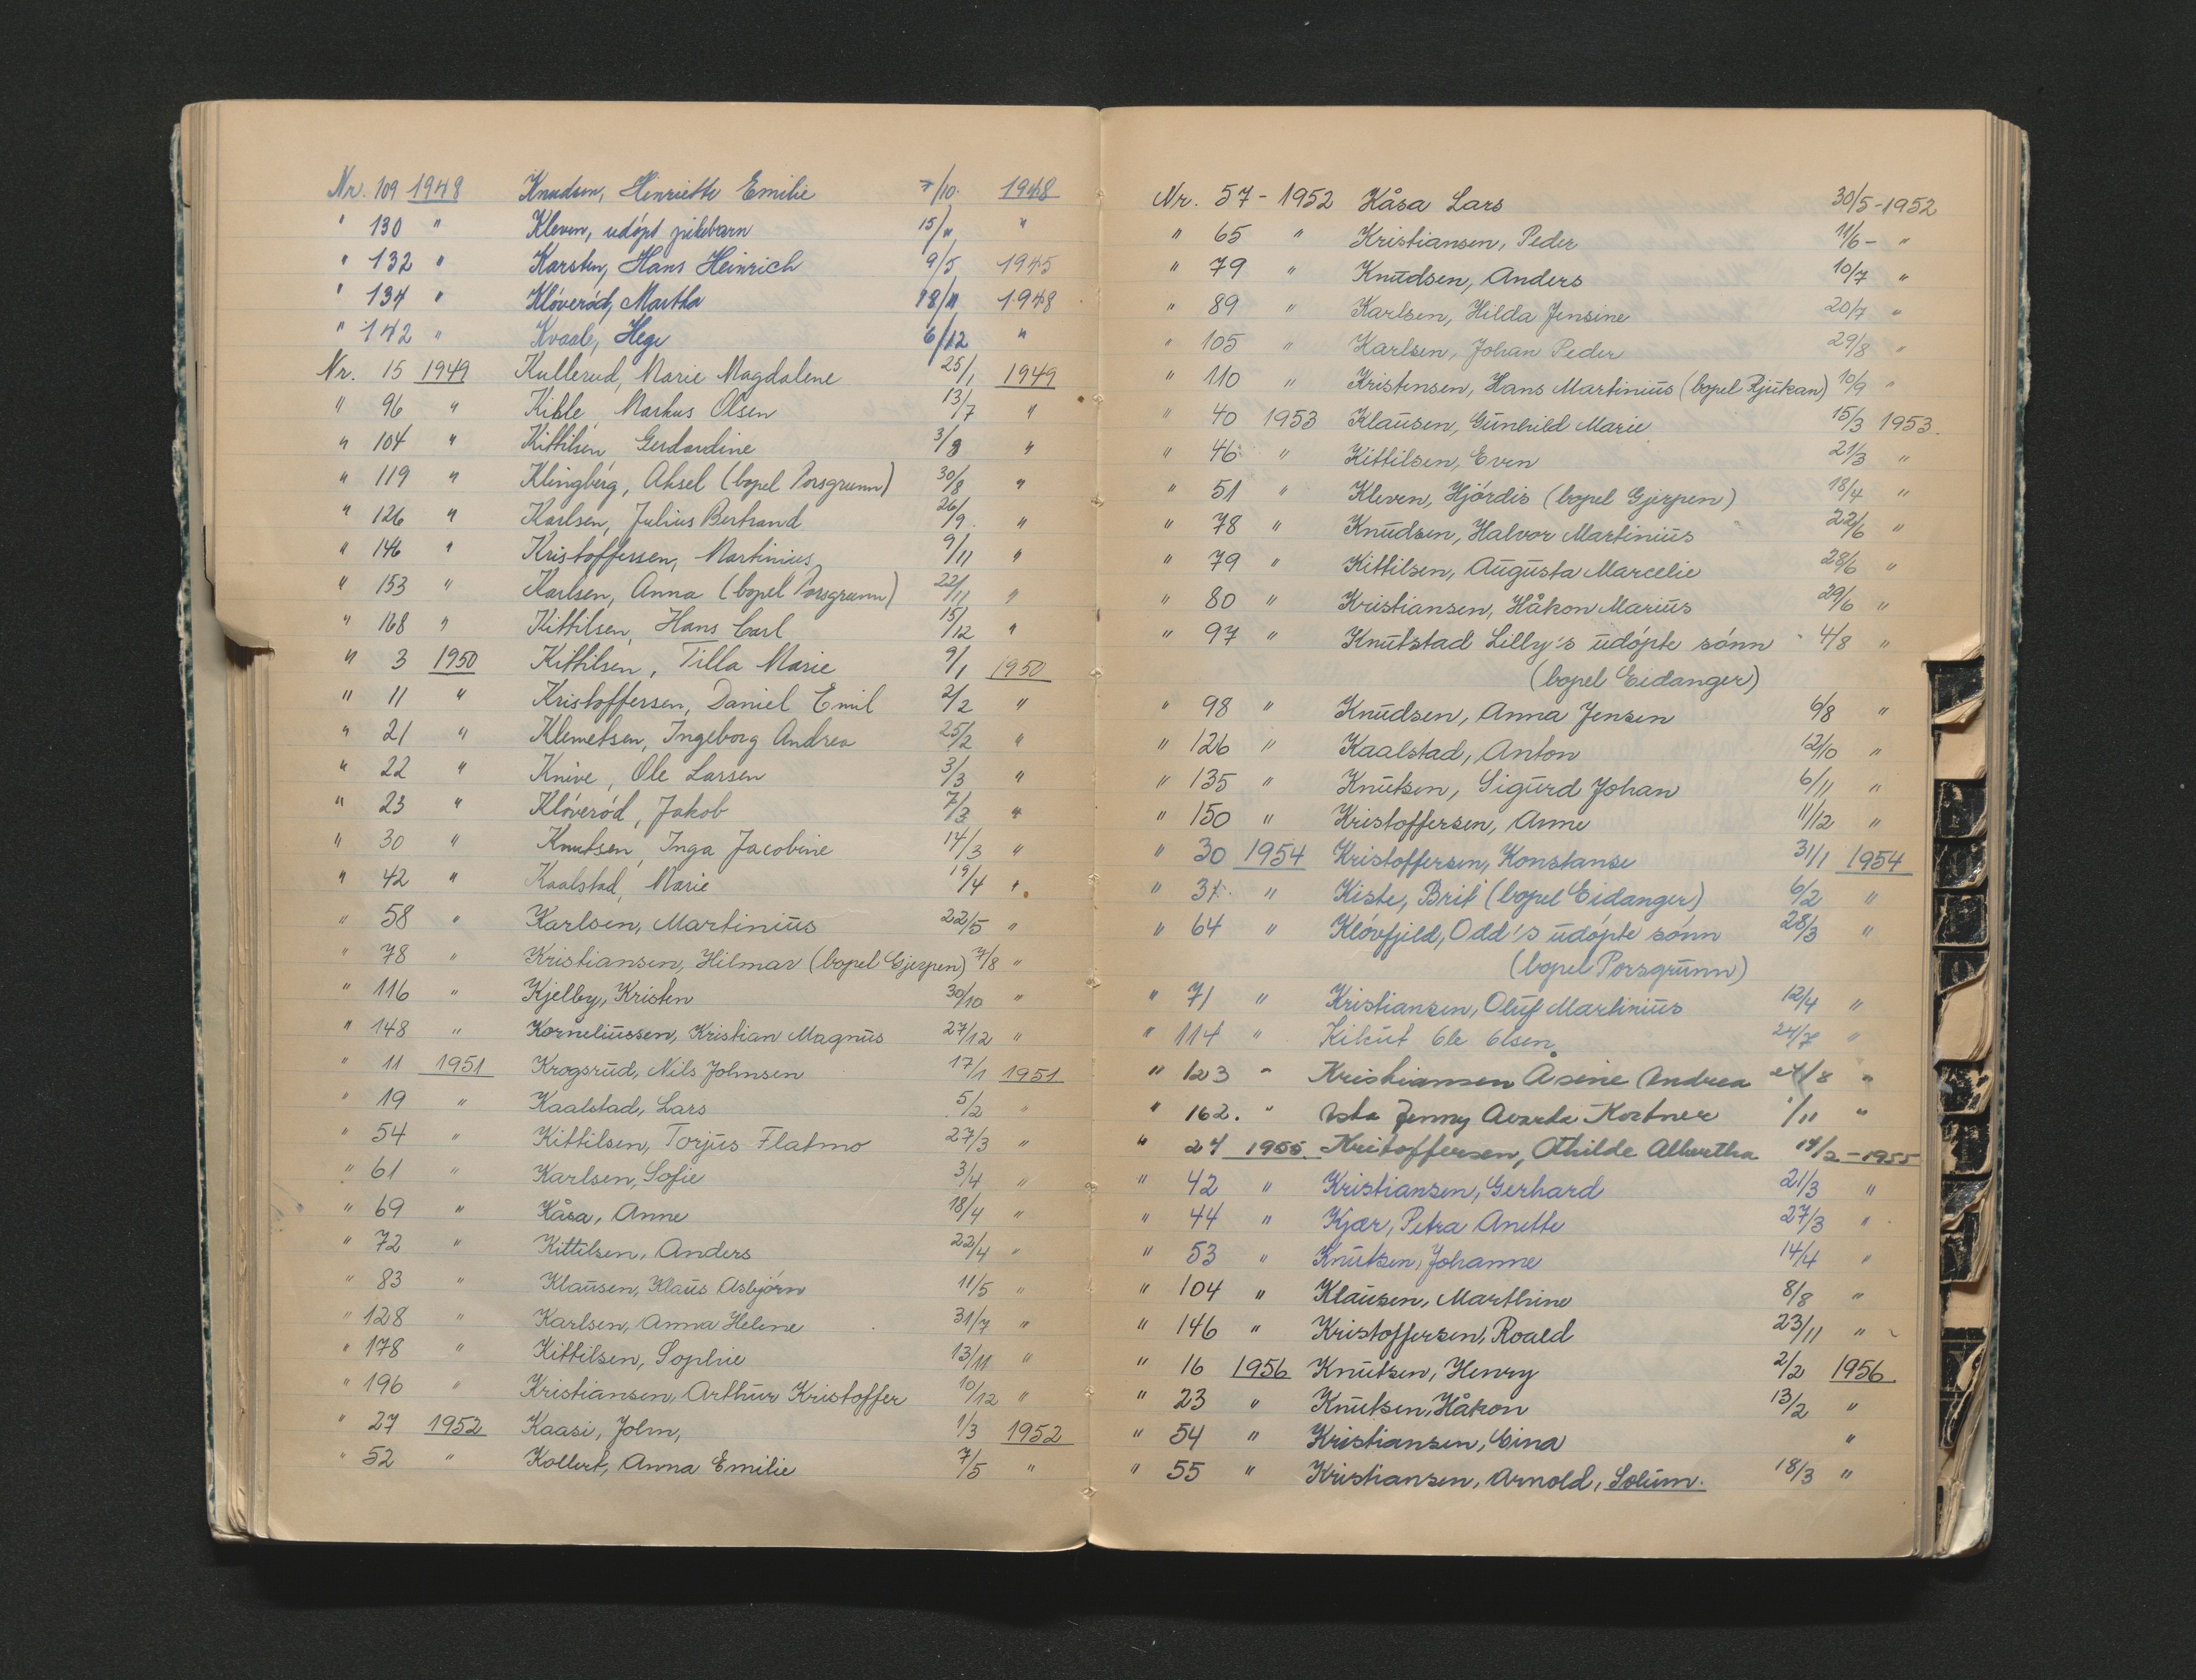 Nr. 109 1948 Knudsen, Henriette Emilie 7/10. 1948
" 130 " Kleven, udöpt pikebarn 15/11 "
" 132 " Karsten, Hans Heinrich 9/5 1945
" 134 " Klöveröd, Martha 18/11 1948
" 142 " Kvaale, Hege 6/12 "
Nr. 15 1949 Kullerud, Marie Magdalene 25/1 1949
" 96 " Kible, Markus Olsen 13/7 "
" 104 " Kittilsen, Gerdardine 3/8 "
" 119 " Klingberg, Aksel (bopel Porsgrunn) 30/8 "
" 126 " Karlsen, Julius Bertrand 26/9. "
" 146 " Kristoffersen, Martinius 9/11 "
" 153 " Karlsen, Anna (bopel Porsgrunn) 22/11 "
" 168 " Kittilsen, Hans Carl 15/12 "
" 3 1950 Kittilsen, Tilla Marie 9/1 1950
" 11 " Kristoffersen, Daniel Emil 2/2 "
" 21 " Klemetsen, Ingeborg Andrea 25/2 "
" 22 " Knive, Ole Larsen 3/3 "
" 23 " Klöveröd, Jakob 7/3 "
" 30 " Knutsen, Inga Jacobine 14/3 "
" 42 " Kaalstad, Marie 19/4 "
" 58 " Karlsen, Martinius 22/5 "
" 78 " Kristiansen, Hilmar (bopel Gjerpen) 7/8 "
" 116 " Kjelby, Kristen 30/10 "
" 148 " Korneliussen, Kristian Magnus 27/12 "
" 11 1951 Krogsrud, Nils Johnsen 17/1 1951
" 19 " Kaalstad, Lars 5/2 "
" 54 " Kittilsen, Torjus Flatmo 27/3 "
" 61 " Karlsen, Sofie 3/4 "
" 69 " Kåsa, Anne 18/4 "
" 72 " Kittilsen, Anders 22/4 "
" 83 " Klausen, Klaus Asbjörn 11/5 "
" 128 " Karlsen, Anna Helene 31/7 "
" 178 " Kittilsen, Sophie 13/11 "
" 196 " Kristiansen, Arthur Kristoffer 10/12 "
" 27 1952 Kaasi, John, 1/3 1952
" 52 " Kollert, Anna Emilie 7/5 "
Nr. 57 - 1952 Kåsa Lars 30/5 - 1952
" 65 " Kristiansen, Peder 11/6 - "
" 79 " Knudsen, Anders 10/7 "
" 89 " Karlsen, Hilda Jensine 20/7 "
" 105 " Karlsen, Johan Peder 29/8 "
" 110 " Kristensen, Hans Martinius (bopel Rjukan) 10/9 "
" 40 1953 Klausen, Gunhild Marie 15/3 1953.
" 46 " Kittilsen, Even 21/3 "
" 51 " Kleven, Hjördis (bopel Gjerpen) 18/4 "
" 78 " Knudsen, Halvor Martinius 22/6 "
" 79 " Kittilsen, Augusta Marcelie 28/6 "
" 80 " Kristiansen, Håkon Marius 29/6 "
" 97 " Knutstad Lilly's udöpte sönn 4/8 "
(bopel Eidanger)
" 98 " Knudsen, Anna Jensen 6/8 "
" 126 " Kaalstad, Anton 12/10 "
" 135 " Knutsen, Sigurd Johan 6/11 "
" 150 " Kristoffersen, Anne 11/12 "
" 30 1954 Kristoffersen, Konstanse 31/1 1954
" 31 " Kiste, Brit (bopel Eidanger) 6/2 "
" 64 " Klövfjeld, Odd's udöpte sönn 28/3 "
(bopel Porsgrunn)
" 71 " Kristiansen, Oluf Martinius 12/4 "
" 114 " Kikut Ole Olsen 24/7 "
" 123 " Kristiansen Åsine Andrea 24/8 "
" 162. " Jenny Kortner 1/11 "
" 27 1955 Kristoffersen, Othilde Albertha 14/2 - 1955
" 42 " Kristiansen, Gerhard 21/3 "
" 44 " Kjær, Petra Anette 27/3 "
" 53 " Knutsen, Johanne 14/4 "
" 104 " Klausen, Marthine 8/8 "
" 146 " Kristoffersen, Roald 23/11 "
" 16 1956 Knutsen, Henry 2/2 1956
" 23 " Knutsen, Håkon 13/2 "
" 54 " Kristiansen, Gina "
" 55 " Kristiansen, Arnold, Solum. 18/3 "